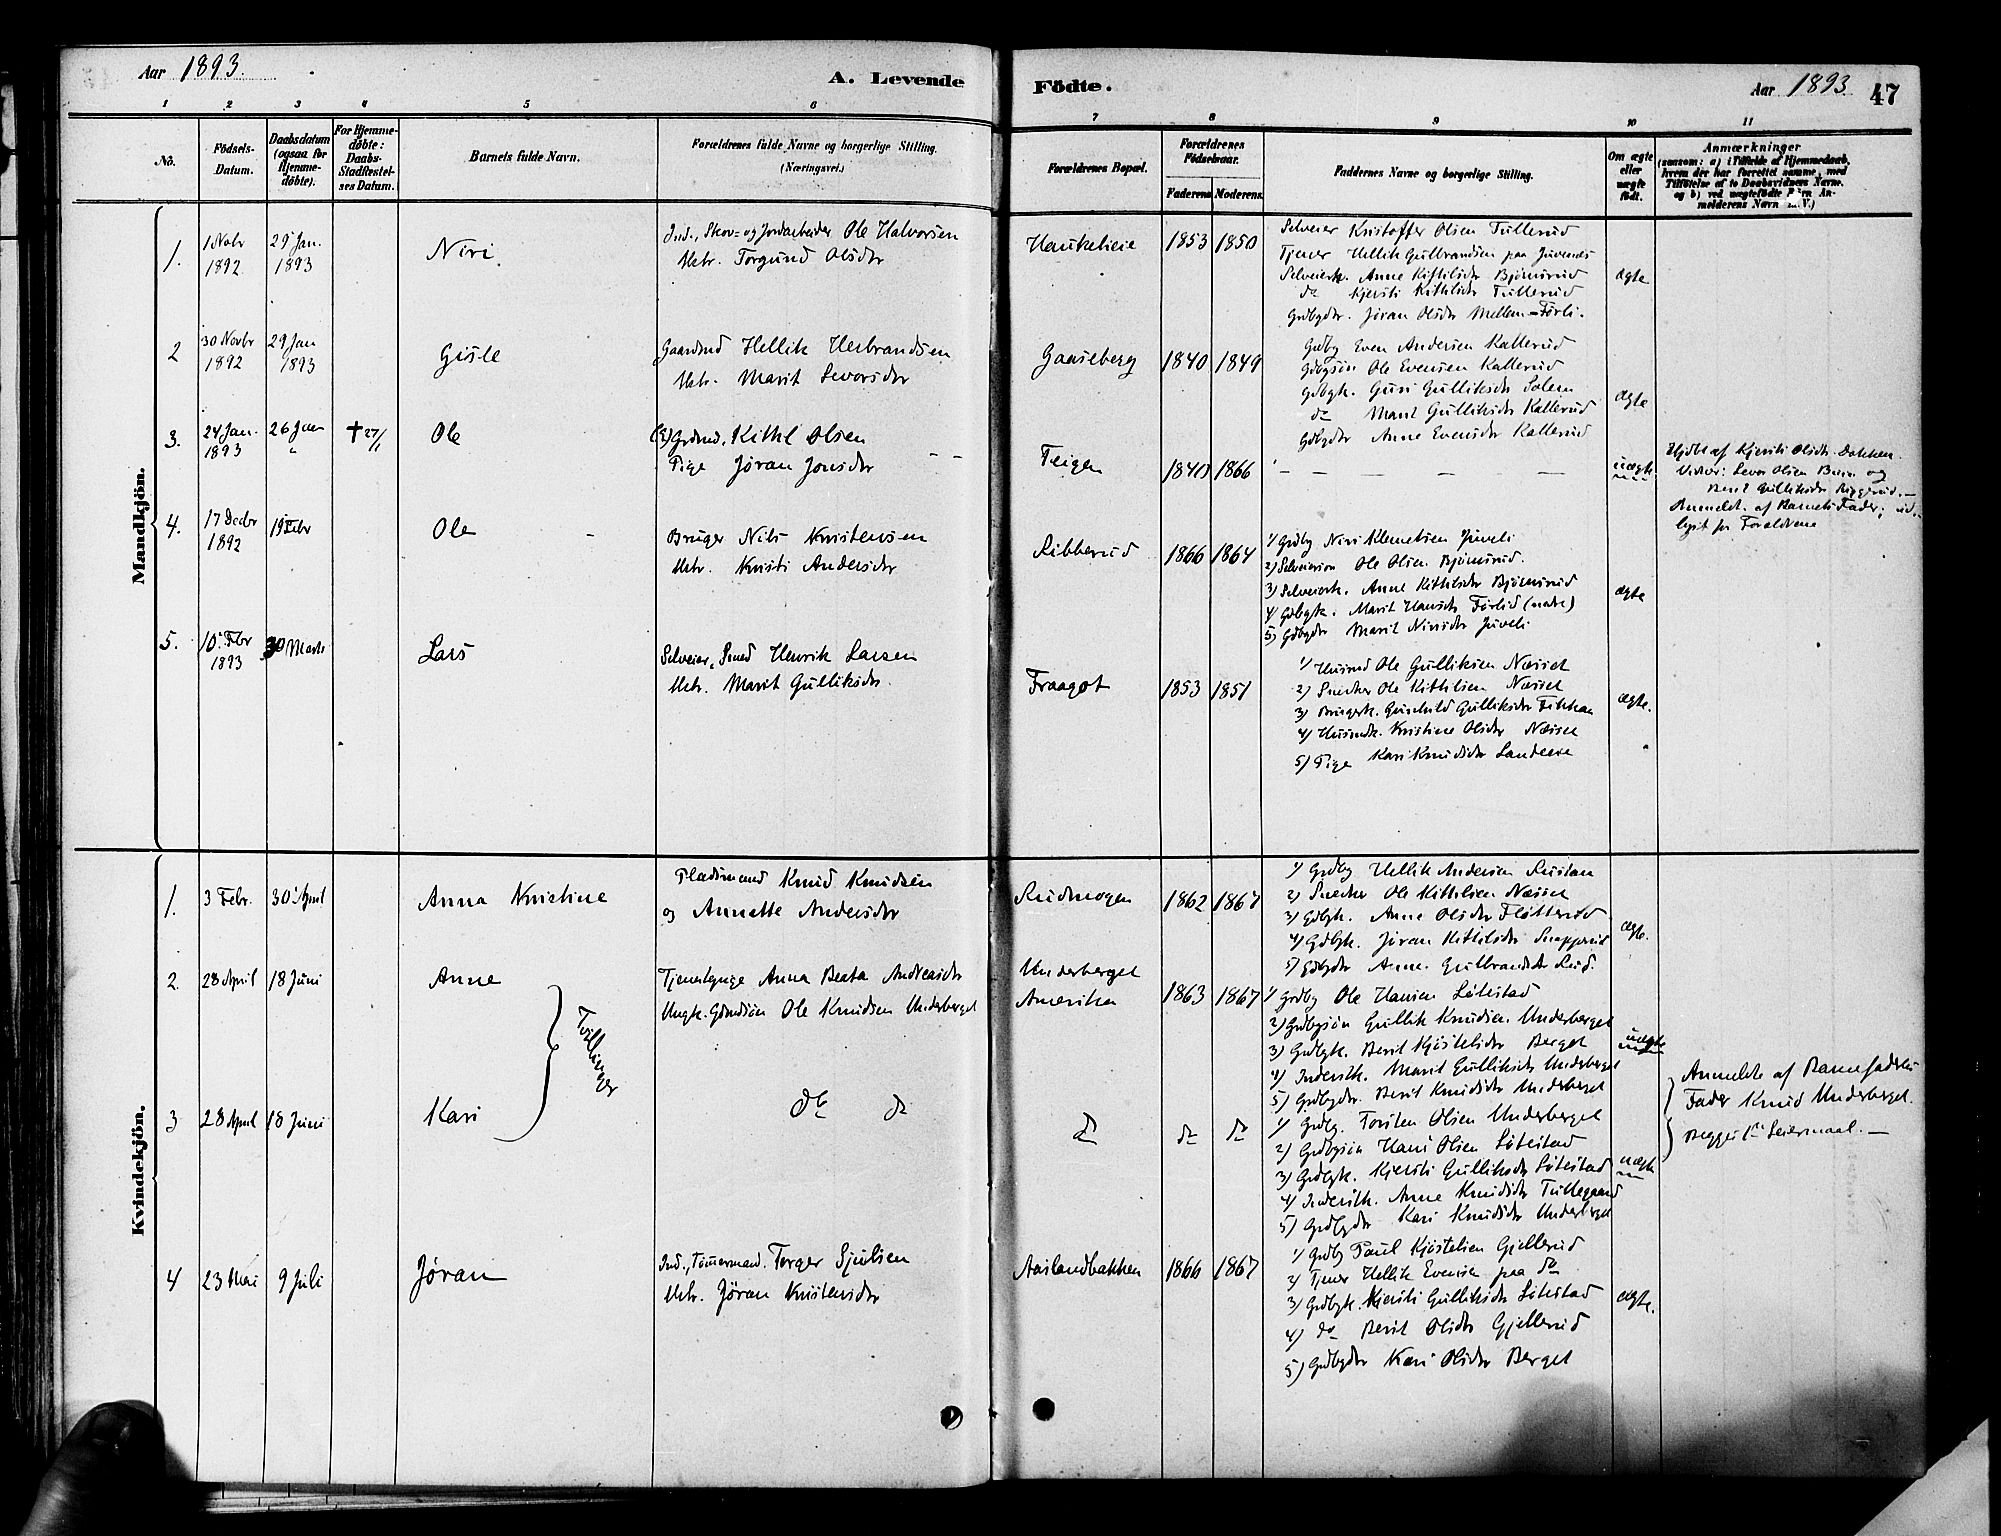 Aar 1893.
A. Levende
Födte.
Aar 1893.
47
1 2 3 4 5 6
7 8 9 10 11
No.
Födsels-Datum.
Daabsdatum (ogsaa for Hjemme-døbte).
For Hjemme-døbte: Daabs-Stadfæstel-ses Datum.
Barnets fulde Navn.
Forældrenes fulde Navne og borgerlige Stilling.
(Næringsvei.)
Forældrenes Bopæl.
Forældrenes Födselsaar.
Faderens Moderens.
Faddernes Navne og borgerlige Stilling.
Om ægte eller uægte født.
Anmærkninger
(saasom: a) i Tilfælde af Hjemmedaab,
hvem der har forrettet samme, med
Tilföielse af to Daabsvidners Navne.
og b) ved uægtefödte Börn An-
melderens Navn m.V.)
Mandkjön.
1. 1 Nobr 1892 29 Jan. 1893 Niri.
Ind., Skov- og Jordarbeider Ole Halvorsen
Hstr. Torgund Olsdtr
Haukelieie 1853 1850
Selveier Kristoffer Olsen Tullerud
Tjener Hellik Gulbrandsen paa Juvenes
Selveierk. Anne Kittilsdtr Bjørnsrud
do Kjersti Kittilsdtr Tullerud
Grdbgdtr. Jøran Olsdtr Mellem-Førli.
ægte
2 30 Novbr 1892 29 Jan 1893 Gisle
Gaardmd Hellik Herbrandsen
Hstr. Marit Levorsdtr
Gaaseberg 1840 1849
Grdbg Even Andersen Kallerud
Gdbgsøn Ole Evensen Kallerud
Gdbgk. Guri Gulliksdtr Solem
do Marit Gulliksdtr Kallerud
Gdbgdtr Anne Evensdtr Kallerud
ægte
3. 24 Jan. 1893 26 Jan " † 27/1 Ole
Grdmd. Kittil Olsen
Pige Jøran Jonsdtr
Teigen 1840 1866
— — — —
uægte
Hjdbt af Kjersti Olsdtr. Dokken.
Vidner: Levor Olsen og
Berit Gulliksdtr
Anmeldt. af Barnets Fader;
for Forældrene
4. 17 Decbr 1892 19 Febr Ole
Bruger Nils Kristensen
Hstr. Kristi Andersdtr
Ribberud 1866 1864
1) Grdbg Niri Klemetsen Juveli
2) Selveiersøn Ole Olsen Bjørnsrud.
3) Selveierk. Anne Kittilsdtr Bjørnsrud
4) Gdbgk. Marit Hansdtr Førlid (nedre)
5) Gdbgdtr Marit Nirisdtr Juveli
ægte
5. 10. Fbr 1893 30 Marts Lars
Selveier, Smed Henrik Larsen
Hstr. Marit Gulliksdtr.
Fraagot 1853 1851
1) Husmd Ole Gulliksen Næsset
2) Snedker Ole Kittilsen Næsset
3) Brugerk. Gunhild Gulliksdtr Fikkan
4) Husmdk. Kristine Olsdtr Næsset
5) Pige Kari Knudsdtr Landeeie
ægte.
Kvindekjön.
1. 3 Febr. 30 April Anna Kristine
Pladsmand Knud Knudsen
og Annette Andersdtr
Rudmogen 1862 1867
1) Grdbg Hellik Andersen Rustan
2) Snedker Ole Kittilsen Næsset
3) Gdbgk. Anne Olsdtr Fløtterud
4) Gdbgk. Jøran Kittilsdtr
5) Gdbgdtr Anne Gulbrandsdtr Rud.
ægte.
2. 28 April 18 Juni Anne
Tjenestepige Anna Beata Andreasdtr
Ungk. Gdmdsøn Ole Knudsen Underberget
Underberget
Amerika 1863 1867
1) Grdbg Ole Hansen Lofstad
2) Grdbgsøn Gullik Knudsen Underberget
3) Grdbgk. Berit Kjøstelsdtr Berget
4) Inderstk. Marit Gulliksdtr Underberget
5) Grdbgdtr. Berit Knudsdtr Underberget
uægte
Tvillinger
3 28 April 18 Juni Kari
do do
do do do
1) Grdbg. Torsten Olsen Underberget
2) Grdbgsøn Hans Olsen Lofstad
3) Grdbgk. Kjersti Gulliksdtr Lofstad
4) Inderstk. Anne Knudsdtr Tullegaard
5) Grdbgdtr Kari Knudsdtr Underberget
uægte
Anmeldte af Barnefaderens
Fader Knud Underberget.
Begges 1ste Leiermaal. —
4 23 Mai 9 Juli Jøran
Ind., Tømmermand. Torger Sjulsen
Hstr. Jøran Kristensdtr
Aaslandbakken 1866 1867
1) Grdbg Paul Kjøstelsen Gjellerud
2) Tjener Hellik Evensen paa do
3) Grdbgk. Kjersti Gulliksdtr Lofstad
4) do Berit Olsdtr Gjellerud
5) Grdbgdtr Kari Olsdtr Berget
ægte.